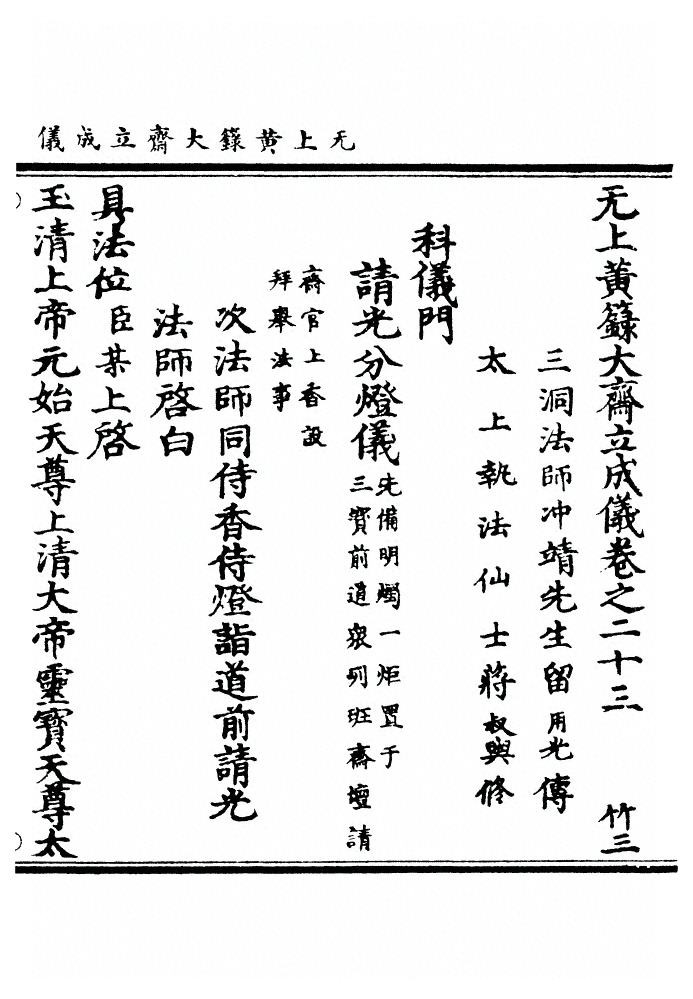 无上黃籙大齋立成儀
无上黃籙大齋立成儀卷之二十三 竹三
三洞法師冲靖先生留用光傳
太上執法仙士蔣叔輿修
科儀門
請光分燈儀先備明燭一炬置于
三寶前道衆列班齋壇請
齋官上香設
拜舉法事
次法師同侍香侍燈詣道前請光
法師啓白
具法位臣某上啓
玉清上帝元始天尊上清大帝靈寶天尊太